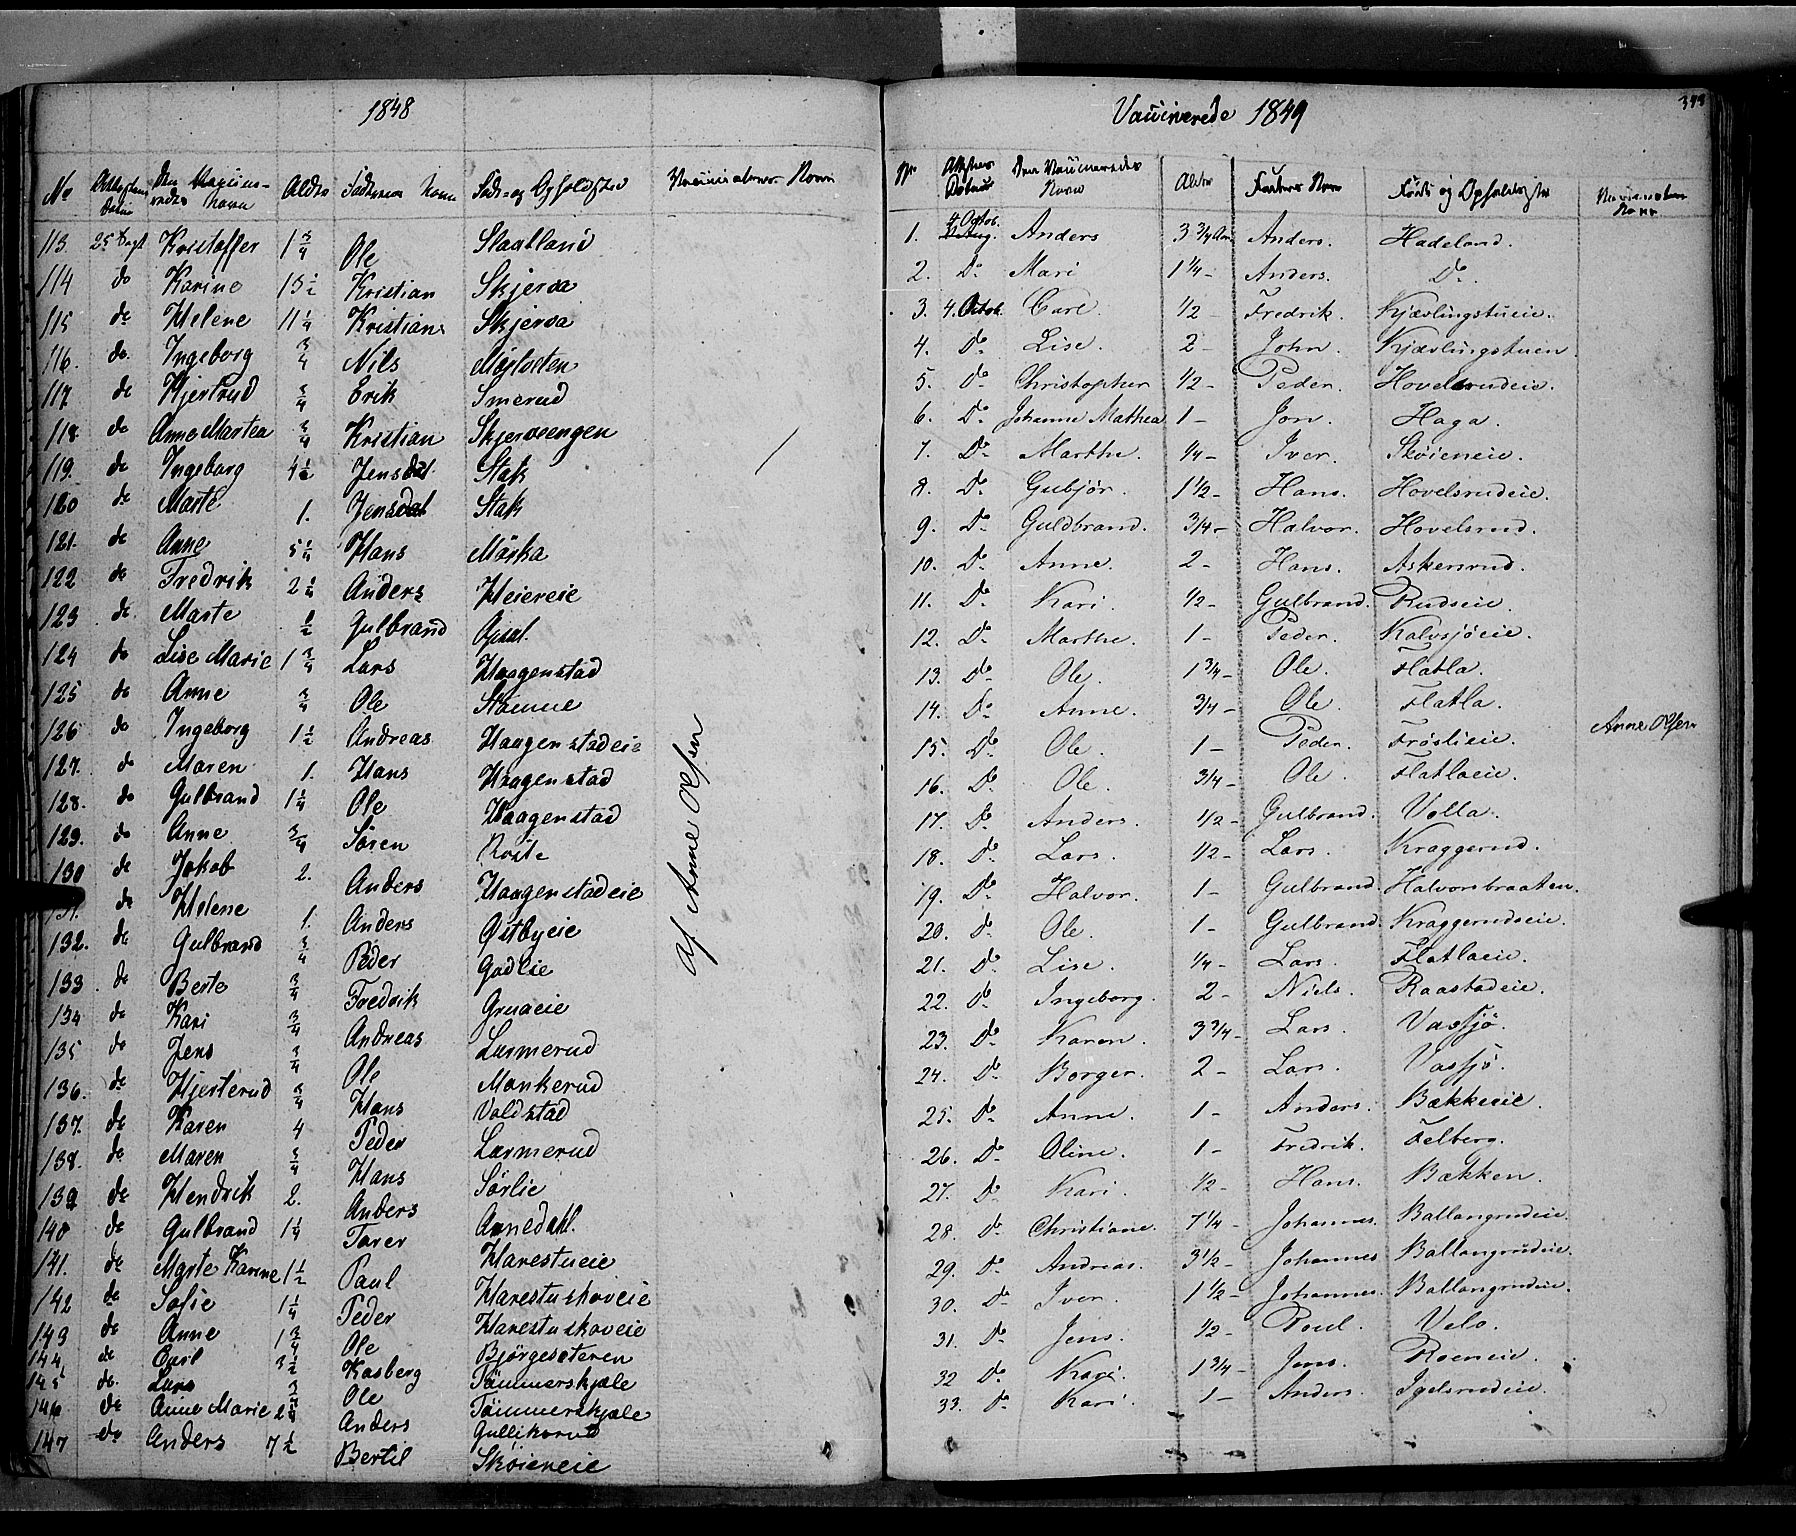 1848
No Attestens Datum Den Vaccineredes Navn Alder Faderens Navn Føde- og Opholdssted Vaccinateurens Navn
113 25 Sept Kristoffer 1 3/4 Ole Slaatland
114 do Karine 15 1/2 Kristian Skjerva
115 do Helene 11 1/4 Kristian Skjerva
116. do. Ingeborg 3/4 Nils
117 do Hjertrud 3/4 Erik Smerud
118. do Anne Martea 3/4 Kristian Skjervaengen
119. do Ingeborg 4 1/2 Jensdat. Stak
120 do Marte 1. Jensdat Stak
121. do Anne 5 1/4 Hans
122 do Fredrik 2 1/4 Anders Heiereie
123 do Marte 1/2 Gulbrand
124 do Lise Marie 1 3/4 Lars Haagenstad
125 do Anne 3/4 Ole
126 do Ingeborg 1 1/2 Andreas Haagenstadeie
127. do Maren 1. Hans Haagenstad
128. do Gulbrand 1 1/4 Ole Haagenstad
129. do Anne 3/4 Søren
130 do Jakob 2. Anders Haagenstadeie
131. do Helene 1. Anders Østbyeie
132. do Gulbrand 3/4 Peder Gadlie
133. do Berte 3/4 Fredrik Gruaeie
134 do Kari 3/4 Andreas Larmerud
135 do Jens 3/4 Ole Monkerud
136. do Hjerterud 3/4 Hans Voldstad
137. do Karen 4 Peder Larmerud
138. do Maren 3/4 Hans Sørlie
139 do Hendrik 2. Anders Annedahl.
140 do Gulbrand 1 1/4 Tarer Harestueie
141. do Marte Karine 1 1/2 Paul Harestuskoveie
142 do Sofie 1 1/4 Peder Harestuskoveie
143 do Anne 1 3/4 Ole Bjørgeseteren
144. do Carl 3 1/2 Kasberg Tømmerskjæle
145 do. Lars 3/4 Ole Tømmerskjæle
146 do Anne Marie 2 3/4 Anders Gullikerud
147 do Anders 7 1/2 Bertil Skøieneie
Af Anne Olsen
Vaccinerede 1849
No Attestens Datum Den Vaccineredes Navn Alder Faders Navn Føds og Opholdsste Vaccinateurens Navn
1. 4 Octob. Anders 3 3/4 Anders. Hadeland.
2. Do. Mari 1 1/4 - Anders. Do.
3. 4. Octob. Carl. 1/2 - Fredrik. Kjævlingstueie.
4. Do. Lise. 2 - John. Kjævlingstuen.
5. Do. Christopher 1/2 - Peder. Hovelsrudeie.
6. Do. Johanne Mathea 1 - Jon. Haga.
7. Do. Marthe. 1/4 - Iver. Skøieneie.
8. Do. Gubjør. 1 1/2 - Hans. Hovelsrudeie.
9. Do. Guldbrand. 3/4 - Halvor. Hovelsrud.
10. Do. Anne. 2 - Hans. Askersrud.
11. Do. Kari. 1/2 - Gulbrand. Rudseie.
12. Do. Marthe. 1 - Peder. Kalvsjøeie.
13. Do. Ole. 1 3/4 - Ole. Flatla.
14. Do. Anne. 3/4 - Ole. Flatla.
15. Do. Ole. 1 - Peder. Frøslieie.
16. Do. Ole. 3/4 - Ole. Flatlaeie.
17. Do. Anders. 1/2 - Gulbrand. Volla.
18. Do. Lars. 1/2 - Lars. Kraggerud.
19. Do. Halvor. 1 - Gulbrand. Halvorsbraaten.
20. Do. Ole. 1 - Gulbrand. Kraggerudseie.
21. Do. Lise. 1/4 - Lars. Flatlaeie.
22. Do. Ingeborg. 2 - Niels. Raastadeie.
23. Do. Karen. 3 3/4 - Lars. Vassjø.
24. Do. Borger. 2 - Lars. Vassjø.
25. Do. Anne. 1 - Anders. Bækkeeie.
26. Do. Oline. 1 - Fredrik. Felberg.
27. Do. Kari. 1/2 - Hans. Bækken.
28. Do. Christiane. 7 1/4 - Johannes. Ballangrudeie.
29. Do. Andreas. 3 1/2 - Johannes Ballangrudeie.
30. Do. Iver. 1 1/2 - Johannes. Ballangrudeie.
31. Do. Jens. 1/2 - Poul. Velo.
32 Do. Kari. 1 3/4 - Jens. Roeneie.
33. Do. Kari. 1 - Anders. Igelsrudeie.
Anne Olsen